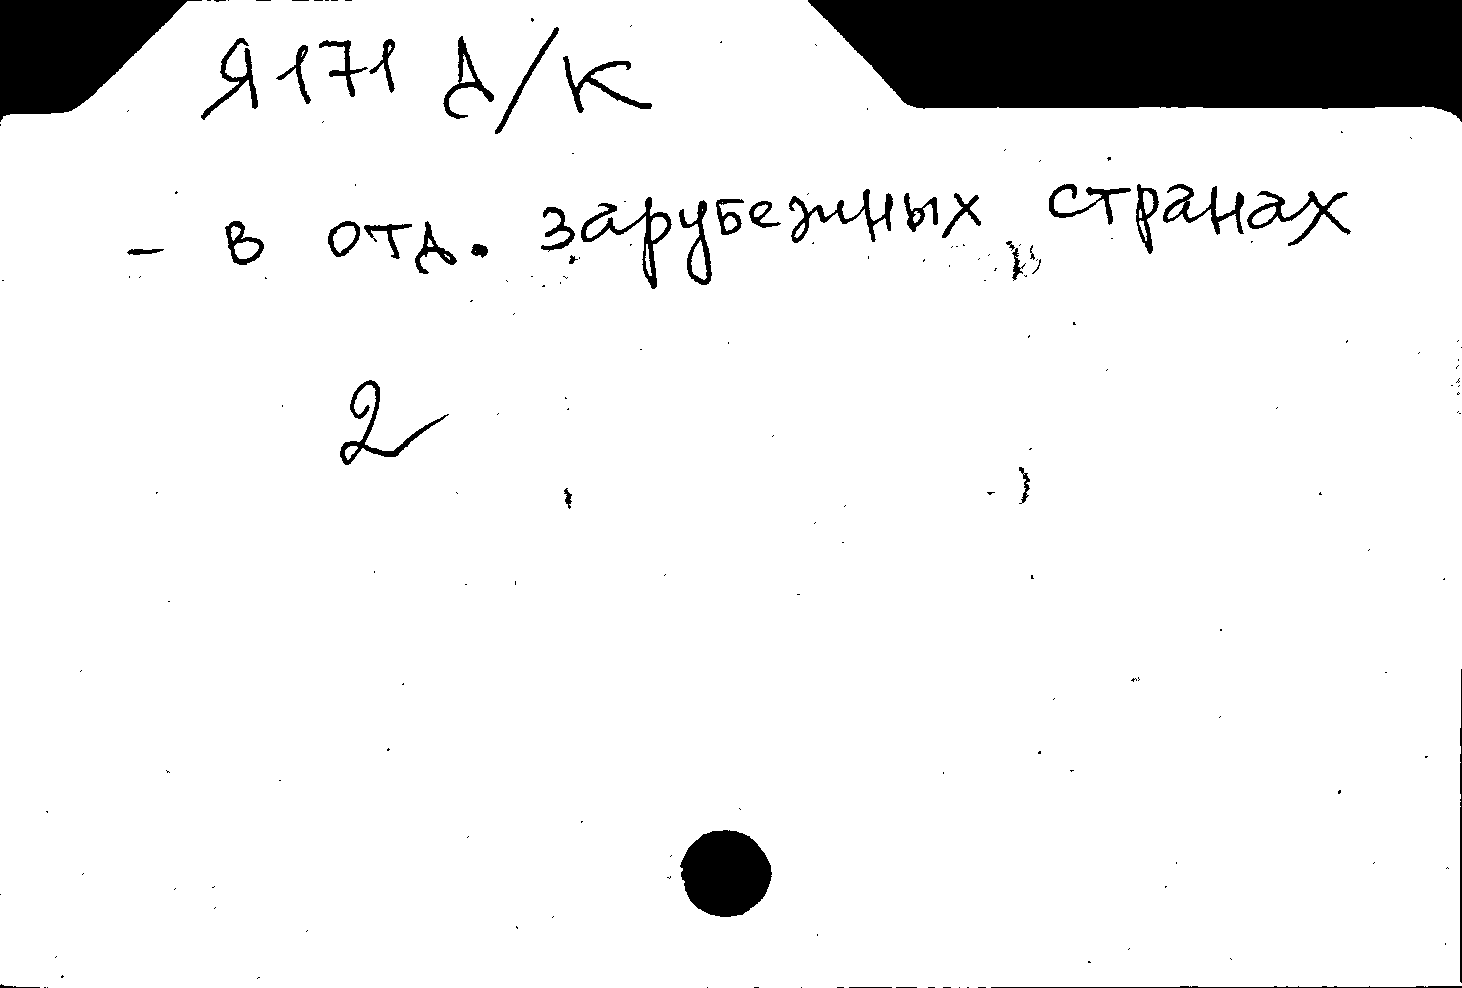 Я171 Д/К
- в отд. зарубежных странах
2